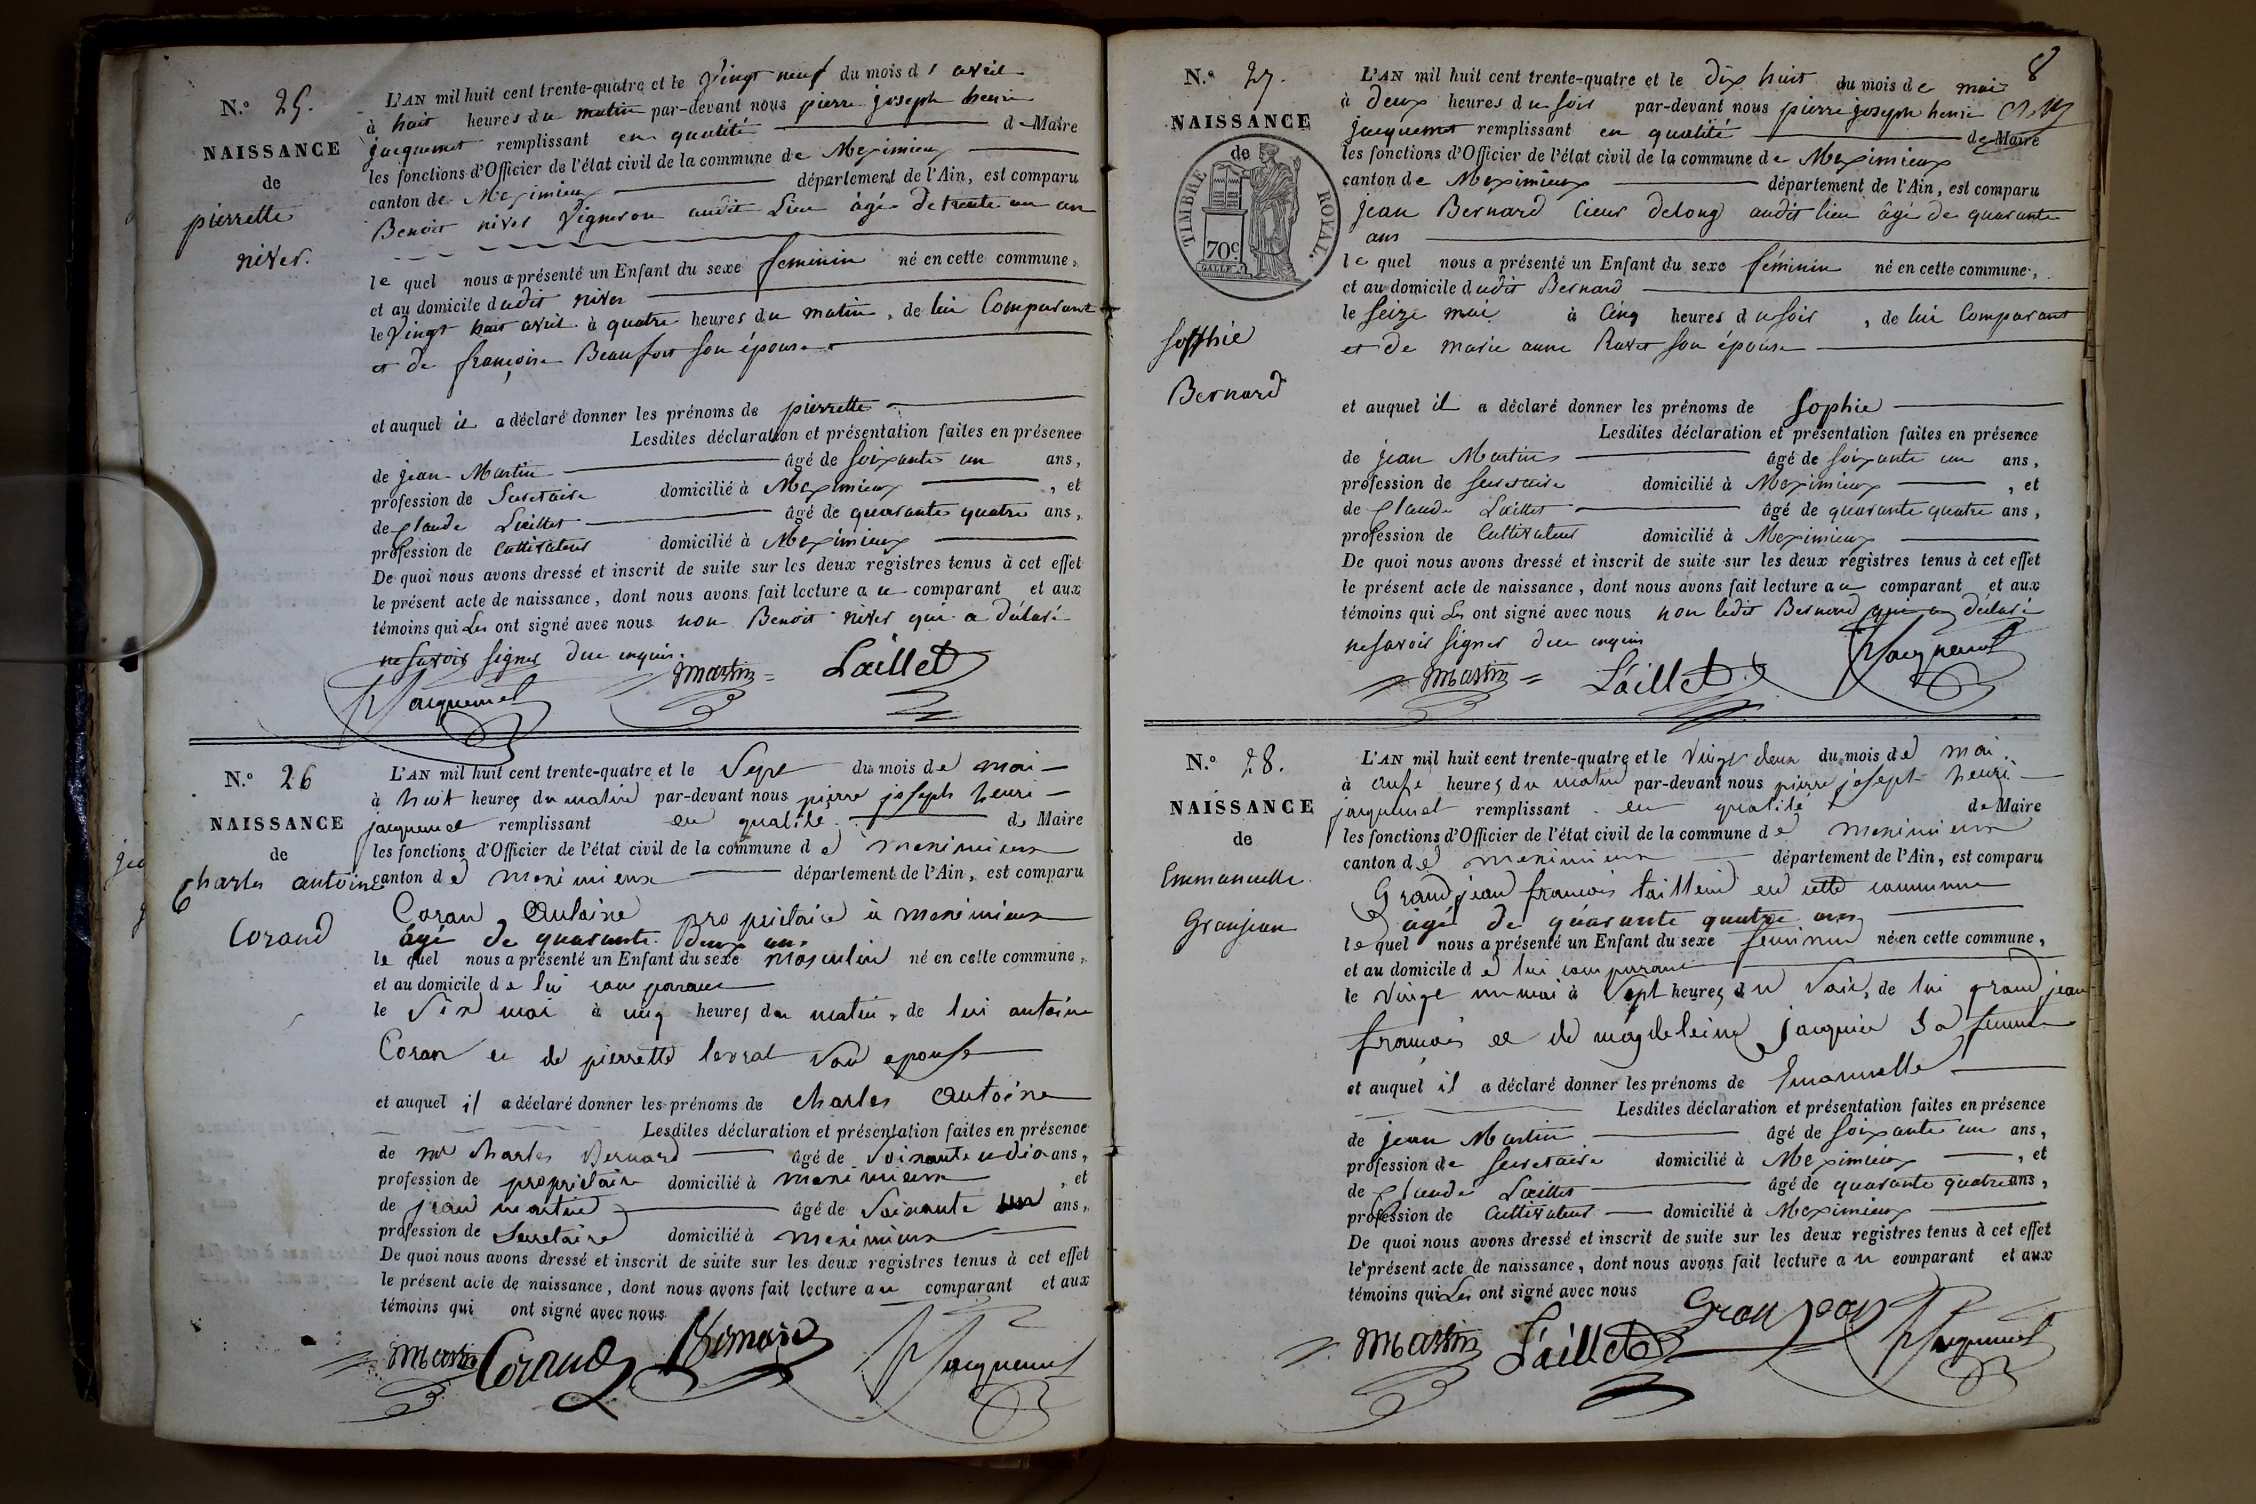 N.° 25.
NAISSANCE
de
pierrette
niver.
L'AN mil huit cent trente-quatre et le vingt neuf du mois d' avril
à huit heures du matin par-devant nous pierre joseph henri
jacquemet remplissant en qualité de Maire
les fonctions d'Officier de l'état civil de la commune de Meximieux
canton de Meximieux département de l'Ain, est comparu
Benoit niver Vigneron audit Lieu âgé de trente un an
le quel nous a présenté un Enfant du sexe feminin né en cette commune,
et au domicile dudit niver
le Vingt huit avril à quatre heures du matin, de lui Comparant
et de françoise Beaufort son épouse
et auquel il a déclaré donner les prénoms de pierrette
Lesdites déclaration et présentation faites en présence
de jean Martin âgé de soixante un ans,
profession de Secretaire domicilié à Meximieux, et
de Claude Laillet âgé de quarante quatre ans,
profession de Cultivateur domicilié à Meximieux
De quoi nous avons dressé et inscrit de suite sur les deux registres tenus à cet effet
le présent acte de naissance, dont nous avons fait lecture au comparant et aux
témoins qui Les ont signé avec nous non Benoit niver qui a déclaré
ne savoir signer due enquis.
Jacquemet martin Laillet
N.° 26
NAISSANCE
de
Charles antoine
Corand
L'AN mil huit cent trente-quatre et le Sept du mois de mai
à huit heures du matin par-devant nous pierre joseph henri
jacquemet remplissant en qualité de Maire
les fonctions d'Officier de l'état civil de la commune de meximieux
canton de meximieux département de l'Ain, est comparu
Coran Antoine proprietaire à meximieux
âgé de quarante Deux ans
le quel nous a présenté un Enfant du sexe masculin né en cette commune,
et au domicile de lui comparant
le Six mai à cinq heures du matin, de lui antoine
Coran et de pierrette levrat son epouse
et auquel il a déclaré donner les prénoms de charles Antoine
Lesdites déclaration et présentation faites en présence
de mr charles Bernard âgé de Soixante et dix ans,
profession de proprietaire domicilié à meximieux, et
de jean martin âgé de Soixante un ans,
profession de Secretaire domicilié à meximieux
De quoi nous avons dressé et inscrit de suite sur les deux registres tenus à cet effet
le présent acte de naissance, dont nous avons fait lecture au comparant et aux
témoins qui ont signé avec nous
martin Corand Bernard Jacquemet
8
N.° 27.
NAISSANCE
de
TIMBRE ROYAL.
70c
GALLE
Sophie
Bernard
L'AN mil huit cent trente-quatre et le dix huit du mois de mai
à deux heures du soir par-devant nous pierre joseph henri
jacquemet remplissant en qualité de Maire
les fonctions d'Officier de l'état civil de la commune de Meximieux
canton de Meximieux département de l'Ain, est comparu
jean Bernard Cieur delong audit lieu âgé de quarante
ans
le quel nous a présenté un Enfant du sexe féminin né en cette commune,
et au domicile dudit Bernard
le Seize mai à Cinq heures du soir, de lui Comparant
et de marie anne Ravet son épouse
et auquel il a déclaré donner les prénoms de Sophie
Lesdites déclaration et présentation faites en présence
de jean Martin âgé de soixante un ans,
profession de secretaire domicilié à Meximieux, et
de Claude Laillet âgé de quarante quatre ans,
profession de Cultivateur domicilié à Meximieux
De quoi nous avons dressé et inscrit de suite sur les deux registres tenus à cet effet
le présent acte de naissance, dont nous avons fait lecture au comparant et aux
témoins qui Les ont signé avec nous non ledit Bernard qui a déclaré
ne savoir signer due enquis
martin Laillet Jacquemet
N.° 28.
NAISSANCE
de
Emmanuelle
Granjean
L'AN mil huit cent trente-quatre et le vingt deux du mois de mai
à onze heures du matin par-devant nous pierre joseph henri
jacquemet remplissant en qualité de Maire
les fonctions d'Officier de l'état civil de la commune de meximieux
canton de meximieux département de l'Ain, est comparu
Grand jean francois tailleur en cette commune
âgé de quarante quatre ans
le quel nous a présenté un Enfant du sexe feminin né en cette commune,
et au domicile de lui comparant
le vingt un mai à Sept heures du Soir, de lui grand jean
francois et de magdeleine jacquier Sa femme
et auquel il a déclaré donner les prénoms de Emanuelle
Lesdites déclaration et présentation faites en présence
de jean Martin âgé de soixante un ans,
profession de secretaire domicilié à Meximieux, et
de Claude Laillet âgé de quarante quatre ans,
profession de Cultivateur domicilié à Meximieux
De quoi nous avons dressé et inscrit de suite sur les deux registres tenus à cet effet
le présent acte de naissance, dont nous avons fait lecture au comparant et aux
témoins qui Les ont signé avec nous
martin Laillet Granjean Jacquemet